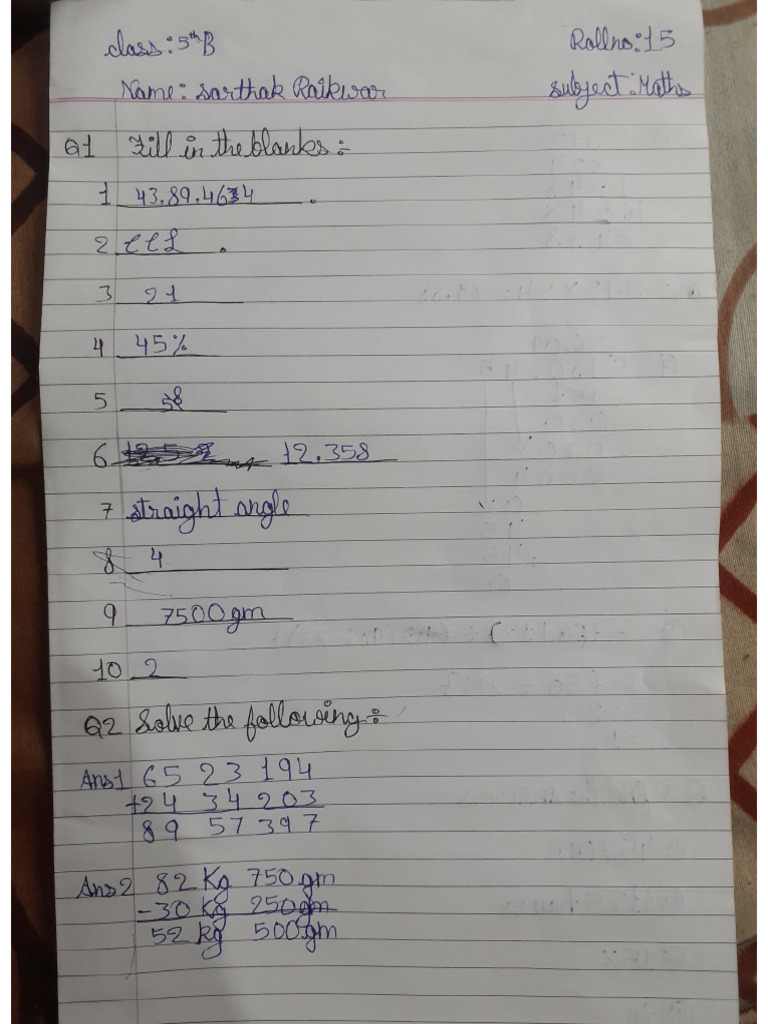 class: 5th B Rollno: 15
Name: sarthak Raikwar subject: Maths
Q1 Fill in the blanks :-
1 43.89.4634 .
2 CCL .
3 21
4 45%
5 58
6 12.358
7 straight angle
8 4
9 7500gm
10 2
Q2 Solve the following :-
Ans1 65 23 194
+24 34 203
89 57 397
Ans2 82 Kg 750gm
-30 Kg 250gm
52 kg 500gm